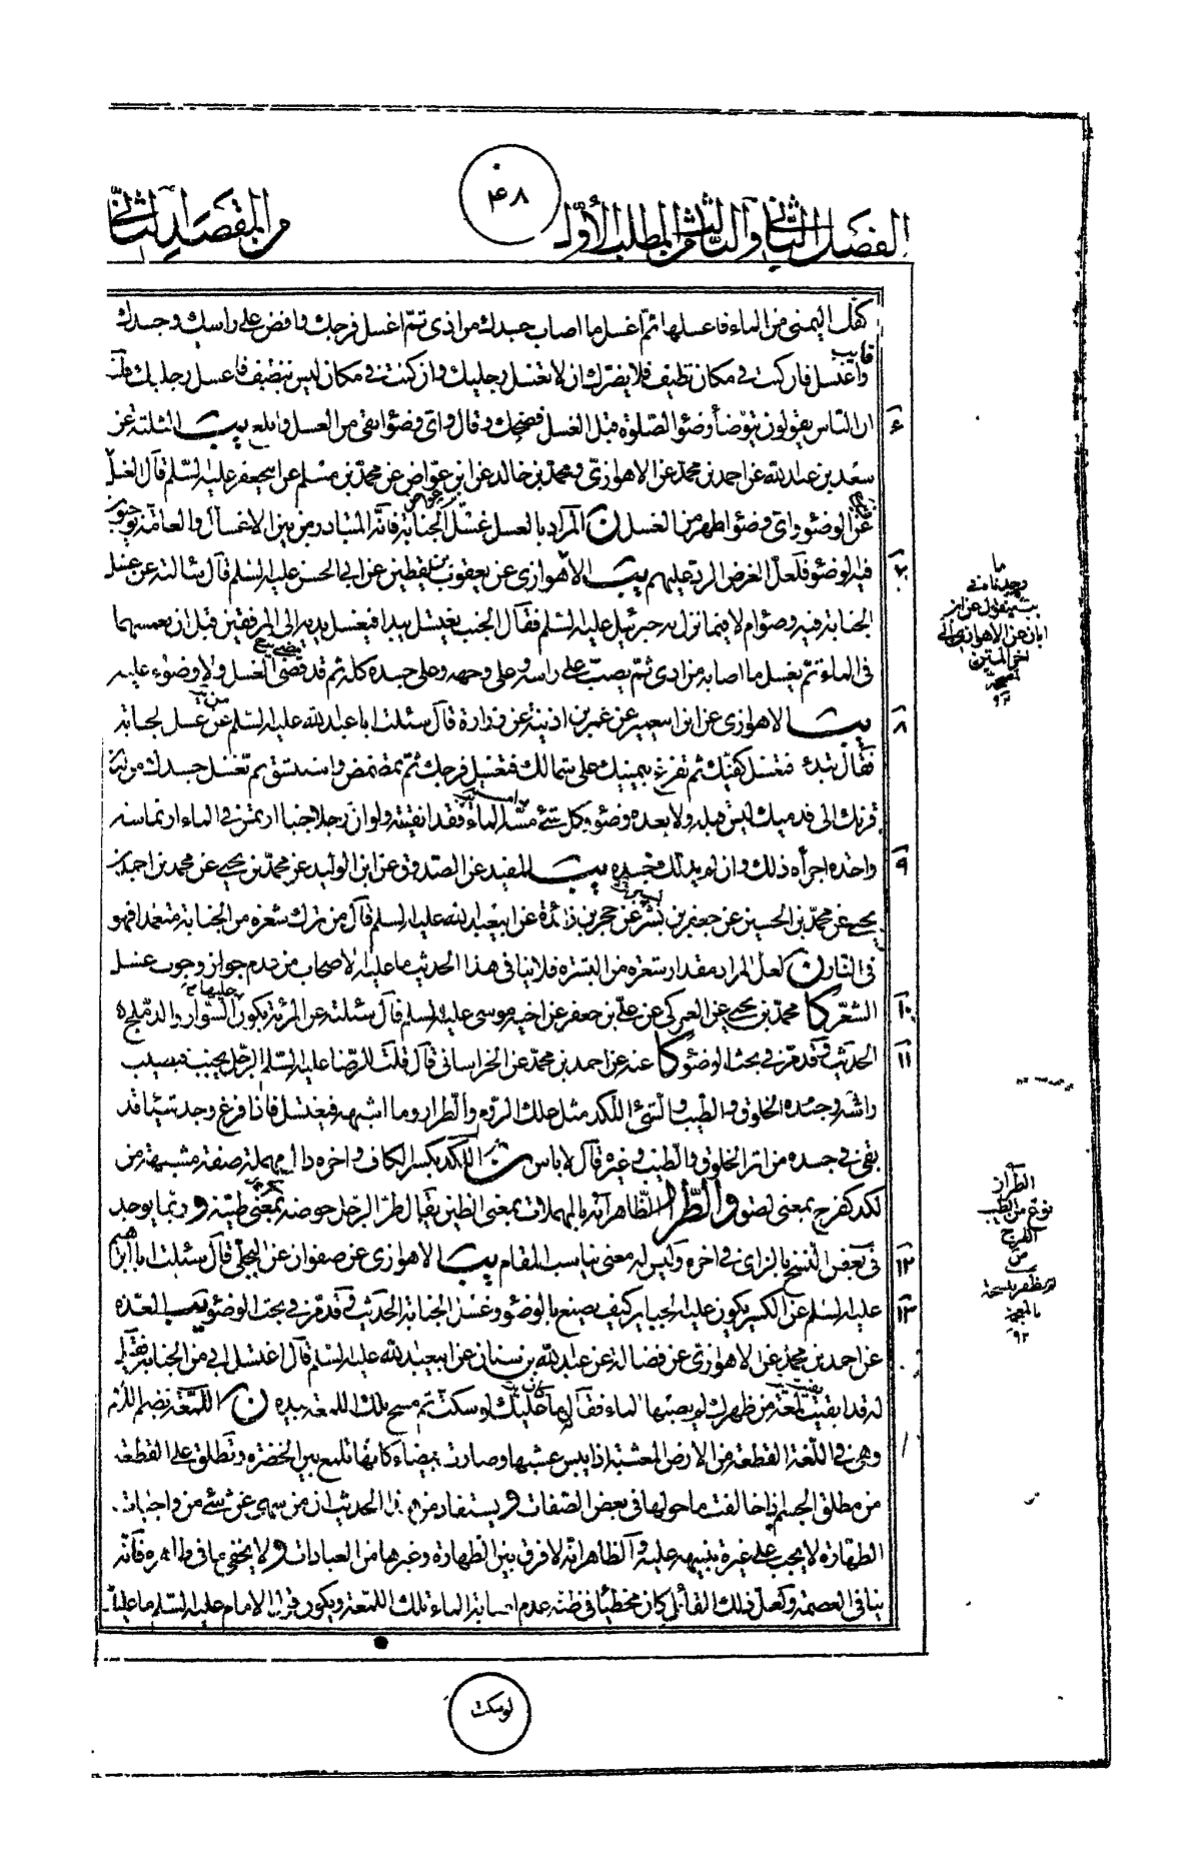 ۴۸
الفصل الثاني والثالث من المطلب الأول
من المقصد الثاني
كفك اليمنى من الماء فاغسلها ثم اغسل ما اصاب جسدك من اذى ثم اغسل فرجك وافض على راسك وجسدك
واغتسل فان كنت في مكان نظيف فلا يضرك ان لا تغسل رجليك وان كنت في مكان ليس بنظيف فاغسل رجليك قلت
ان الناس يقولون يتوضأ وضوء الصلوة قبل الغسل فضحك وقال واي وضوء انقى من الغسل وابلغ يب الثلثة عن
۶
سعد بن عبدالله عن احمد بن محمد عن الاهوازي ومحمد بن خالد عن ابن عواض عن محمد بن مسلم عن ابيجعفر عليه السلم قال الغسل
يجزي عن الوضوء واي وضوء اطهر من الغسل ن المراد بالغسل غسل الجنابة فانه المتبادر من بين الاغسال والعامة يوجبون
فيه الوضوء فلعل الغرض الرد عليهم يب الاهوازي عن يعقوب بن يقطين عن ابي الحسن عليه السلم قال سالته عن غسل
۷
الجنابة فيه وضوء ام لا فيما نزل به جبرئيل عليه السلم فقال الجنب يغتسل يبدا فيغسل يديه الى المرفقين قبل ان يغمسهما
في الماء ثم يغسل ما اصابه من اذى ثم يصب على راسه وعلى وجهه وعلى جسده كله ثم قد قضى الغسل ولا وضوء عليه
يب الاهوازي عن ابن ابيعمير عن عمر بن اذينة عن زرارة قال سئلت ابا عبدالله عليه السلم عن غسل الجنابة
۸
فقال تبدء فتغسل كفيك ثم تفرغ بيمينك على شمالك فتغسل فرجك ثم تمضمض واستنشق ثم تغسل جسدك من لدن
قرنك الى قدميك ليس قبله ولا بعده وضوء كل شئ مسه الماء فقد انقيته ولو ان رجلا جنبا ارتمس في الماء ارتماسة
واحدة اجزاه ذلك وان لم يدلك جسده يب المفيد عن الصدوق عن ابن الوليد عن محمد بن يحيى عن محمد بن احمد بن
۹
يحيى عن محمد بن الحسين عن جعفر بن بشير عن حجر بن زائدة عن ابيعبدالله عليه السلم قال من ترك شعرة من الجنابة متعمدا فهو
في النار ن لعل المراد مقدار شعرة من البشرة فلا ينافي هذا الحديث ما عليه الاصحاب من عدم جواز وجوب غسل
الشعر كا محمد بن يحيى عن العمركي عن علي بن جعفر عن اخيه موسى عليه السلم قال سئلته عن المرئة يكون عليها السوار والدملج ه
۱۰
الحديث وقد مر في بحث الوضوء كا عنه عن احمد بن محمد عن الخراساني قال قلت للرضا عليه السلم الرجل يجنب فيصيب
۱۱
راسه وجسده الخلوق والطيب والشئ اللكد مثل علك الروم والطرار وما اشبهه فيغتسل فاذا فرغ وجد شيئا قد
بقى في جسده من اثر الخلوق والطيب وغيره قال لا باس ن اللكد بكسر الكاف واخره دال مهملة صفة مشبهة من
لكد كفرح بمعنى لصق والطرار الظاهر انه بالمهملات بمعنى الطين يقال طر الرجل حوضه بمعنى طينه وربما يوجد
في بعض النسخ بالزاي في اخره وليس له معنى يناسب المقام يب الاهوازي عن صفوان عن البجلي قال سئلت ابا ابرهيم
۱۲
عليه السلم عن الكسير يكون عليه الجباير كيف يصنع بالوضوء وغسل الجنابة الحديث وقد مر في بحث الوضوء يب العدة
۱۳
عن احمد بن محمد عن الاهوازي عن فضالة عن عبدالله بن سنان عن ابيعبدالله عليه السلم قال اغتسل ابي من الجنابة فقيل
له قد ابقيت لمعة من ظهرك لم يصبها الماء فقال له ما كان عليك لو سكت ثم مسح تلك اللمعة بيده ن اللمعة بضم اللام
وهي في اللغة القطعة من الارض المعشبة اذا يبس عشبها وصارت بيضاء كانها تلمع بين الخضرة وتطلق على القطعة
من مطلق الجسم اذا خالفت ما حولها في بعض الصفات ويستفاد من هذا الحديث ان من سهى عن شئ من واجبات
الطهارة لا يجب على غيره تنبيهه عليه والظاهر انه لا فرق بين الطهارة وغيرها من العبادات ولا يخفى ما في ظاهره فانه
ينافي العصمة ولعل ذلك القائل كان مخطئا في ظنه عدم اصابة الماء تلك اللمعة ويكون قول الامام عليه السلم ما عليك
لو سكت
الطراز
نوع من الطيب